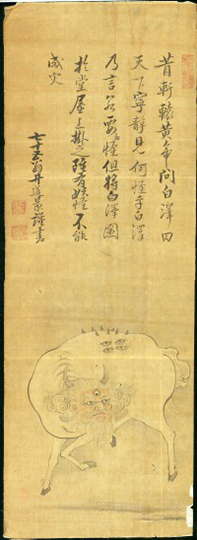 昔軒轅黄帝問白澤曰
天下寧静見何怪乎白澤
乃言若要怪但将白澤圖
於堂屋上掛之雖有妖怪不能
成灾
七十五翁井
謹書